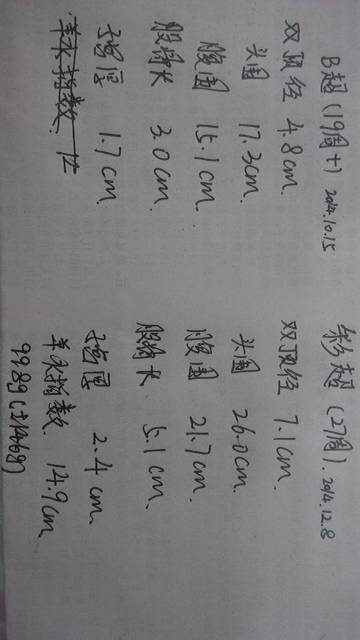 B超(19周+) 2014.10.15
双顶径 4.8cm.
头围 17.3cm.
腹围 15.1cm.
股骨长 3.0cm.
子宫厚 1.7cm.
羊水指数.
彩超(27周). 2014.12.8
双顶径 7.1cm.
头围 26.0cm.
腹围 21.7cm.
股骨长 5.1cm.
子宫厚 2.4cm.
羊水指数. 14.9cm
998g(±146g)